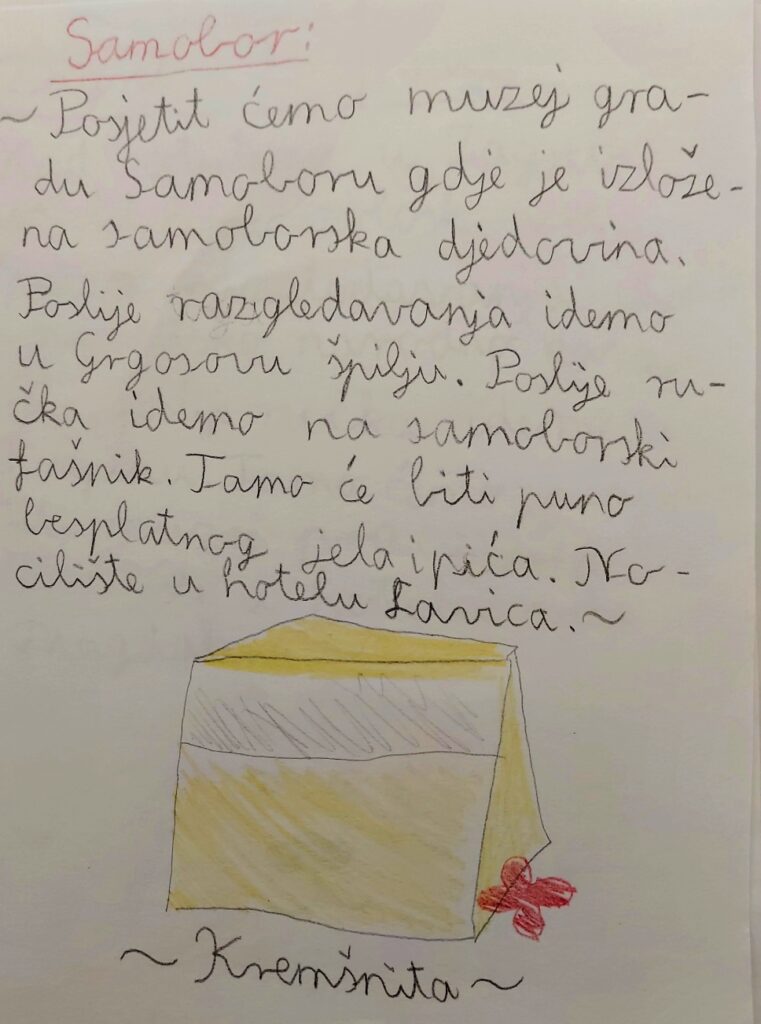 Samobor:
~Posjetit ćemo muzej gra-
du Samoboru gdje je izlože-
na samoborska djedovina.
Poslije razgledavanja idemo
u Grgosovu špilju. Poslije ru-
čka idemo na samoborski
fašnik. Tamo će biti puno
besplatnog jela i pića. No-
ćilište u hotelu Lavica.~
~Kremšnita~